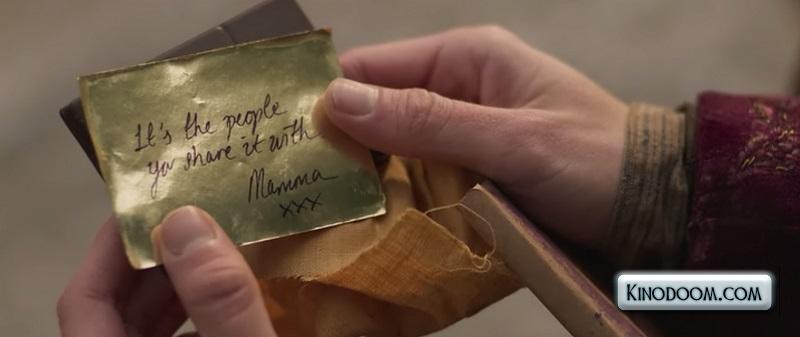 It's the people
you share it with
Mamma
xxx
KINODOOM.COM